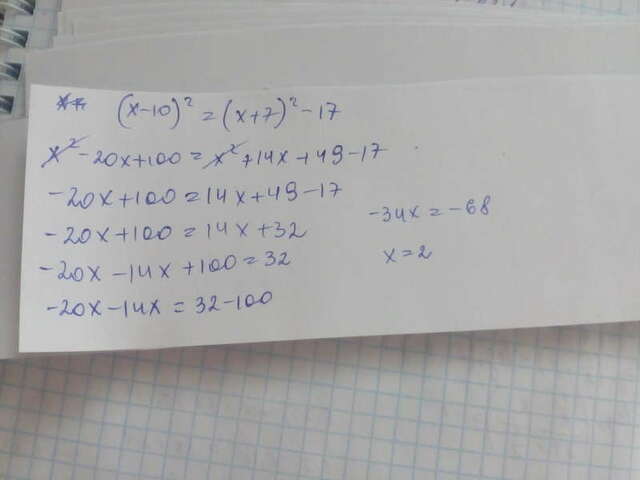 (x-10)² = (x+7)² - 17
x² - 20x + 100 = x² + 14x + 49 - 17
-20x + 100 = 14x + 49 - 17
-20x + 100 = 14x + 32
-20x - 14x + 100 = 32
-20x - 14x = 32 - 100
-34x = -68
x = 2